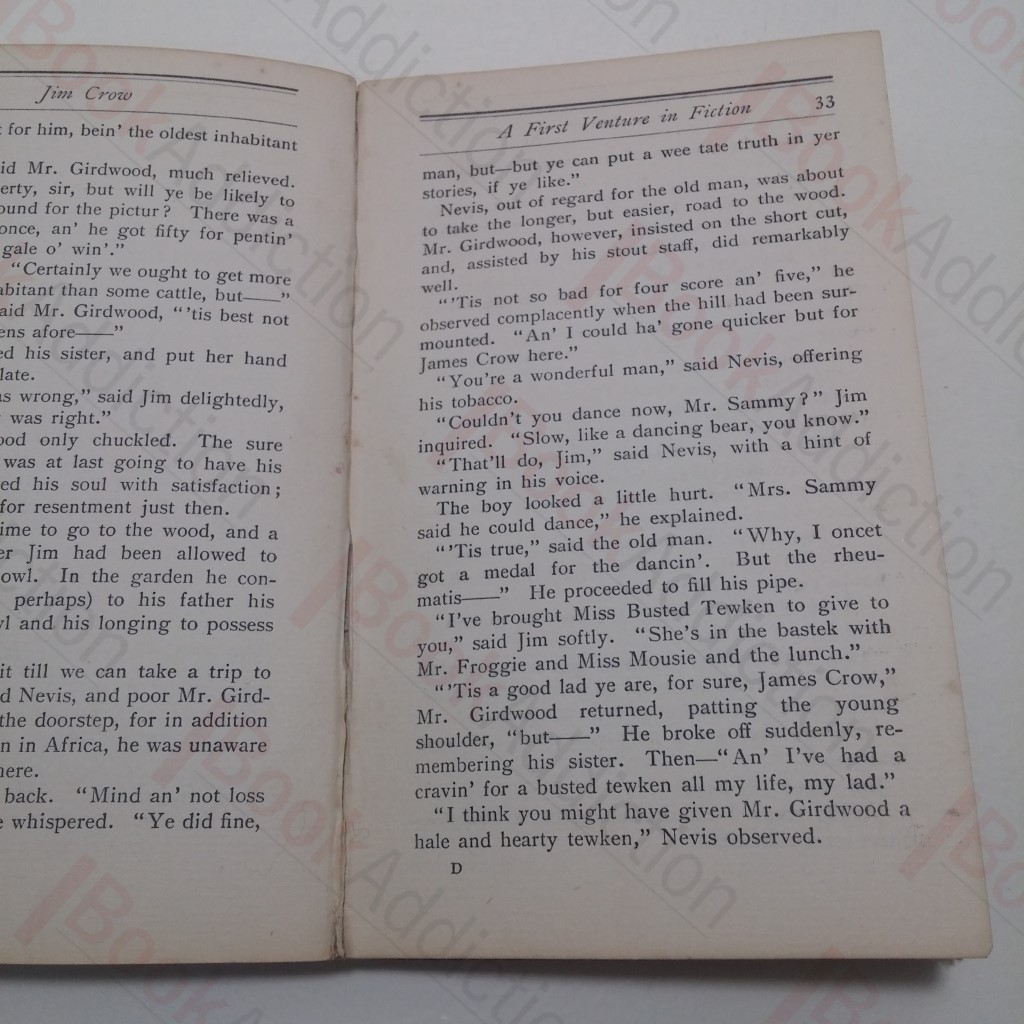 Jim Crow
for him, bein' the oldest inhabitant
id Mr. Girdwood, much relieved.
erty, sir, but will ye be likely to
ound for the pictur? There was a
once, an' he got fifty for pentin'
gale o' win'."
"Certainly we ought to get more
abitant than some cattle, but——"
aid Mr. Girdwood, "'tis best not
ens afore——"
ed his sister, and put her hand
late.
as wrong," said Jim delightedly,
was right."
ood only chuckled. The sure
was at last going to have his
ed his soul with satisfaction;
for resentment just then.
ime to go to the wood, and a
er Jim had been allowed to
owl. In the garden he con-
perhaps) to his father his
wl and his longing to possess
it till we can take a trip to
d Nevis, and poor Mr. Gird-
the doorstep, for in addition
n in Africa, he was unaware
here.
back. "Mind an' not loss
e whispered. "Ye did fine,
A First Venture in Fiction 33
man, but—but ye can put a wee tate truth in yer
stories, if ye like."
Nevis, out of regard for the old man, was about
to take the longer, but easier, road to the wood.
Mr. Girdwood, however, insisted on the short cut,
and, assisted by his stout staff, did remarkably
well.
"'Tis not so bad for four score an' five," he
observed complacently when the hill had been sur-
mounted. "An' I could ha' gone quicker but for
James Crow here."
"You're a wonderful man," said Nevis, offering
his tobacco.
"Couldn't you dance now, Mr. Sammy?" Jim
inquired. "Slow, like a dancing bear, you know."
"That'll do, Jim," said Nevis, with a hint of
warning in his voice.
The boy looked a little hurt. "Mrs. Sammy
said he could dance," he explained.
"'Tis true," said the old man. "Why, I oncet
got a medal for the dancin'. But the rheu-
matis——" He proceeded to fill his pipe.
"I've brought Miss Busted Tewken to give to
you," said Jim softly. "She's in the bastek with
Mr. Froggie and Miss Mousie and the lunch."
"'Tis a good lad ye are, for sure, James Crow,"
Mr. Girdwood returned, patting the young
shoulder, "but——" He broke off suddenly, re-
membering his sister. Then—"An' I've had a
cravin' for a busted tewken all my life, my lad."
"I think you might have given Mr. Girdwood a
hale and hearty tewken," Nevis observed.
D
BookAddiction